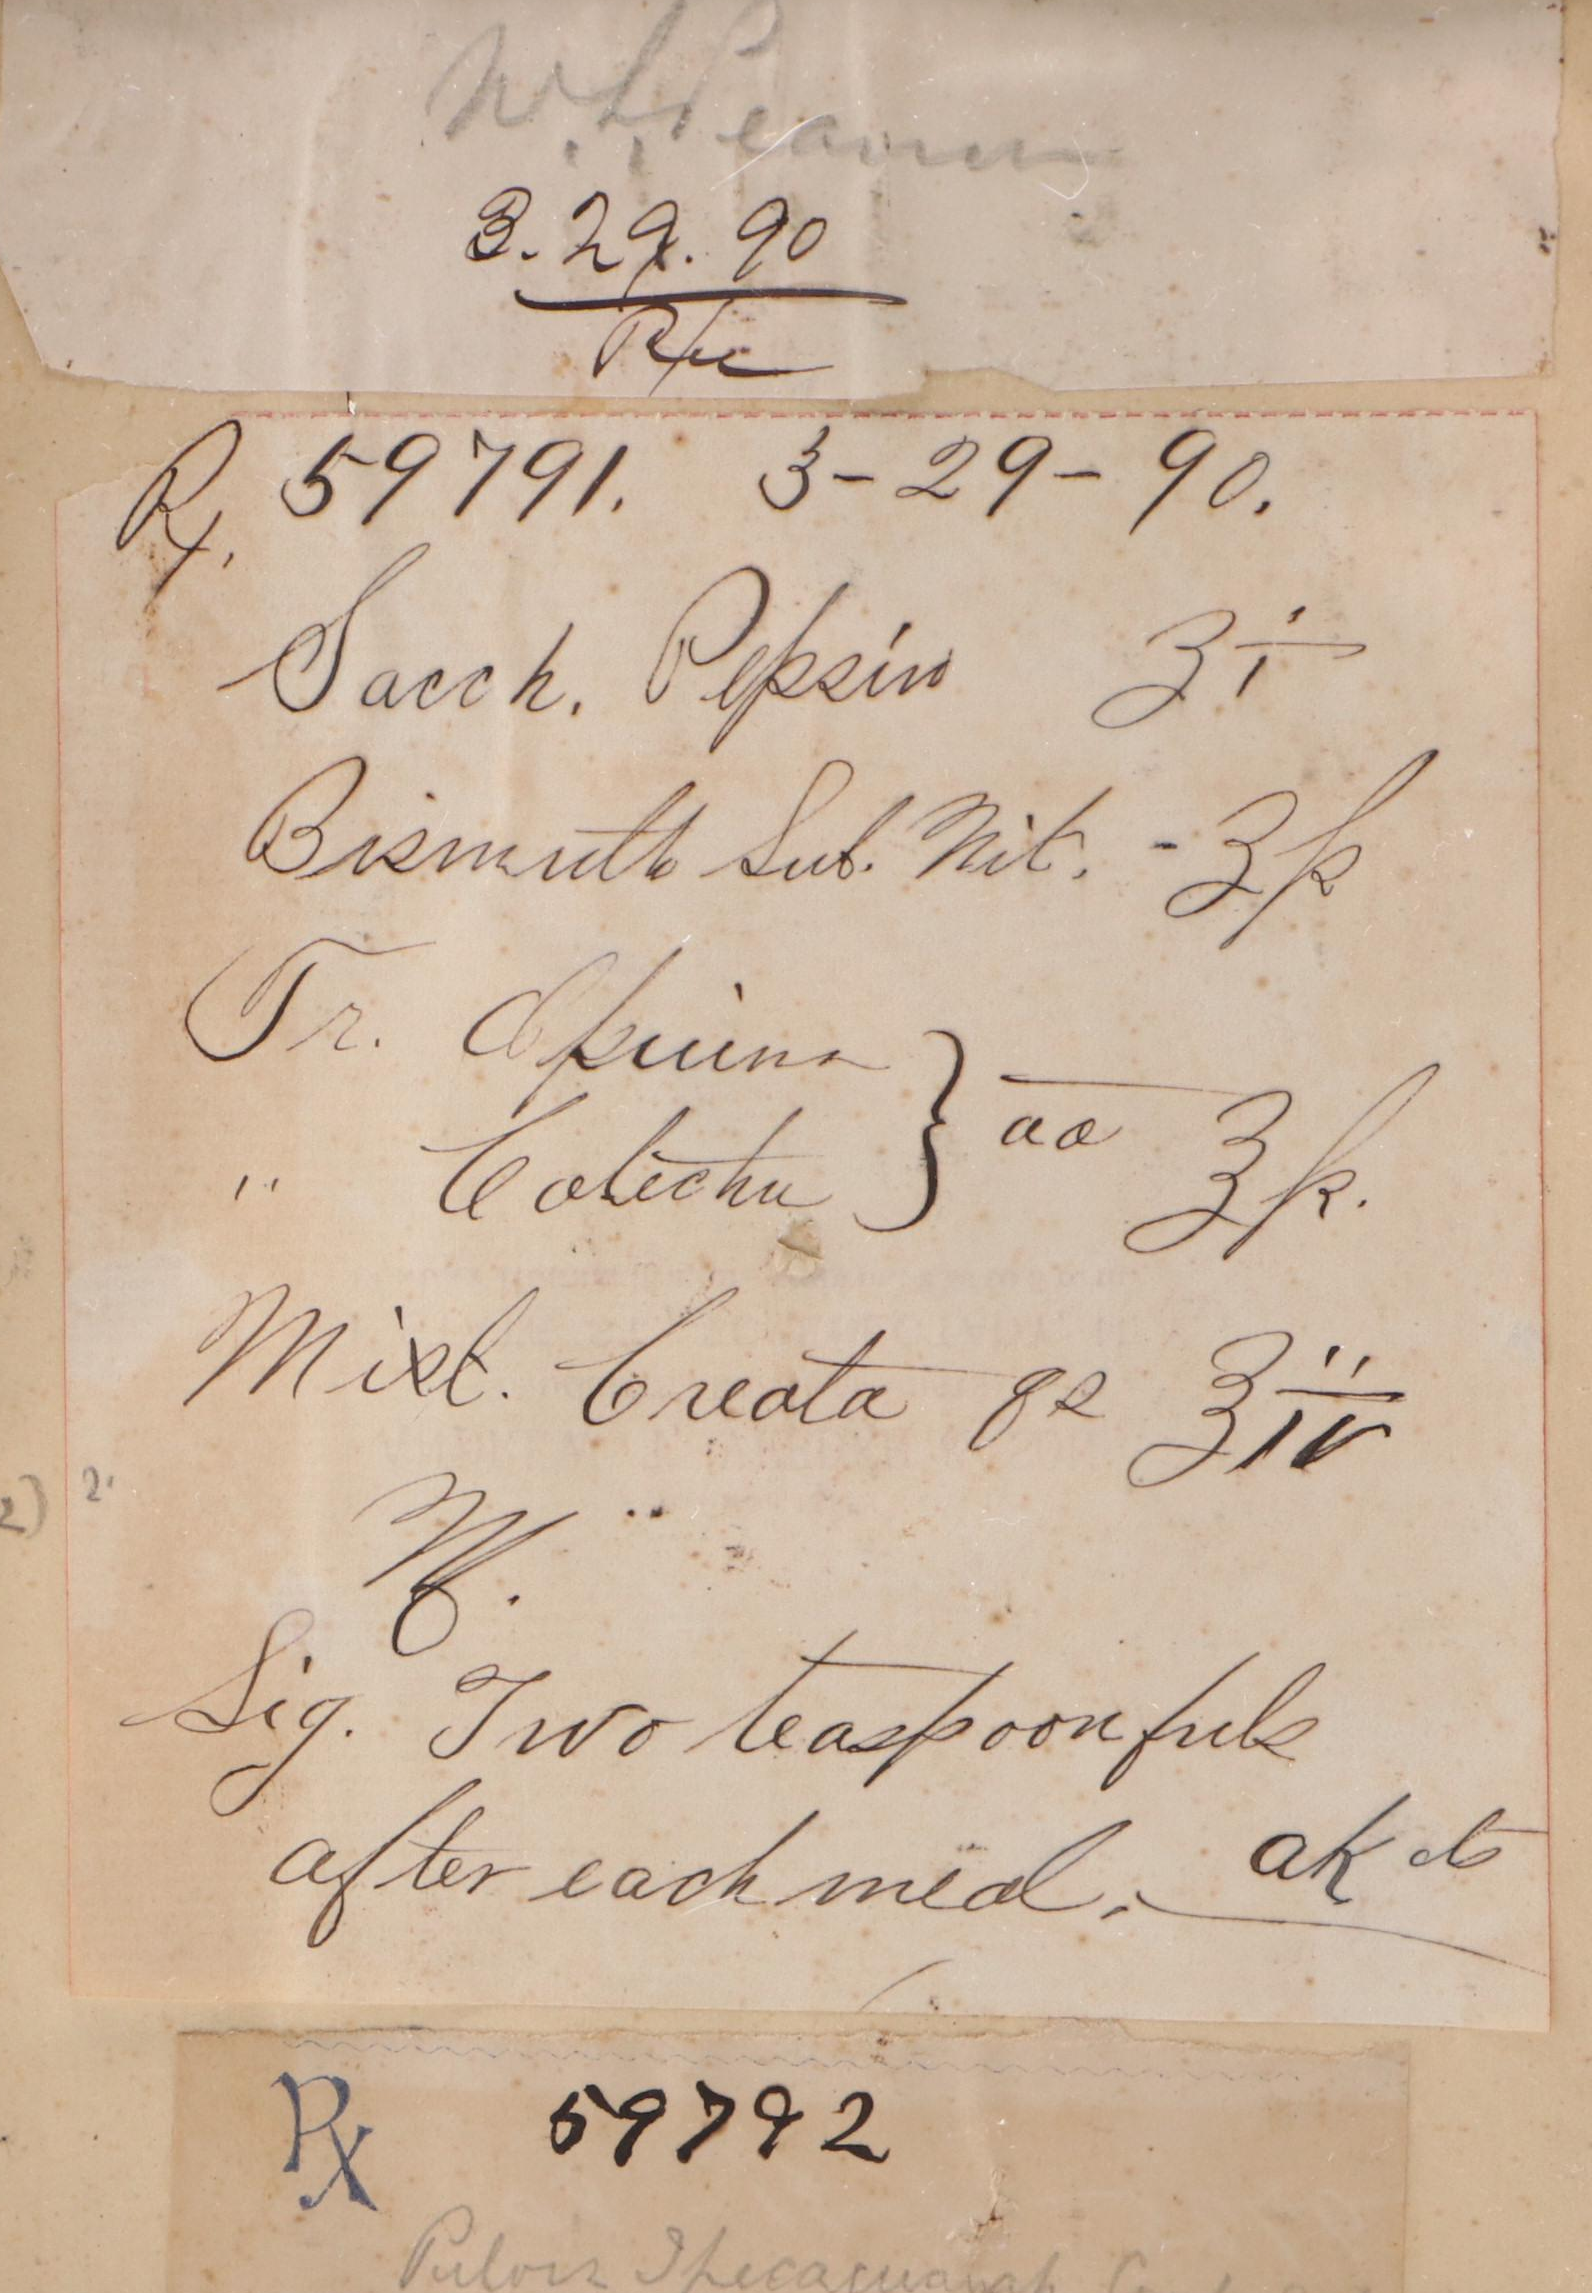 W. L.
3.29.90
℞ 59791. 3-29-90.
Sacch. Pepsin ʒ i
Bismuth Sub. Nit. - ʒ ß
Tr. Opium
" Catechu } aa ʒ ß.
Mist. Creata qs ʒ iv
M.
Sig. Two teaspoonfuls
after each meal. ak
℞ 59792
Pulvis